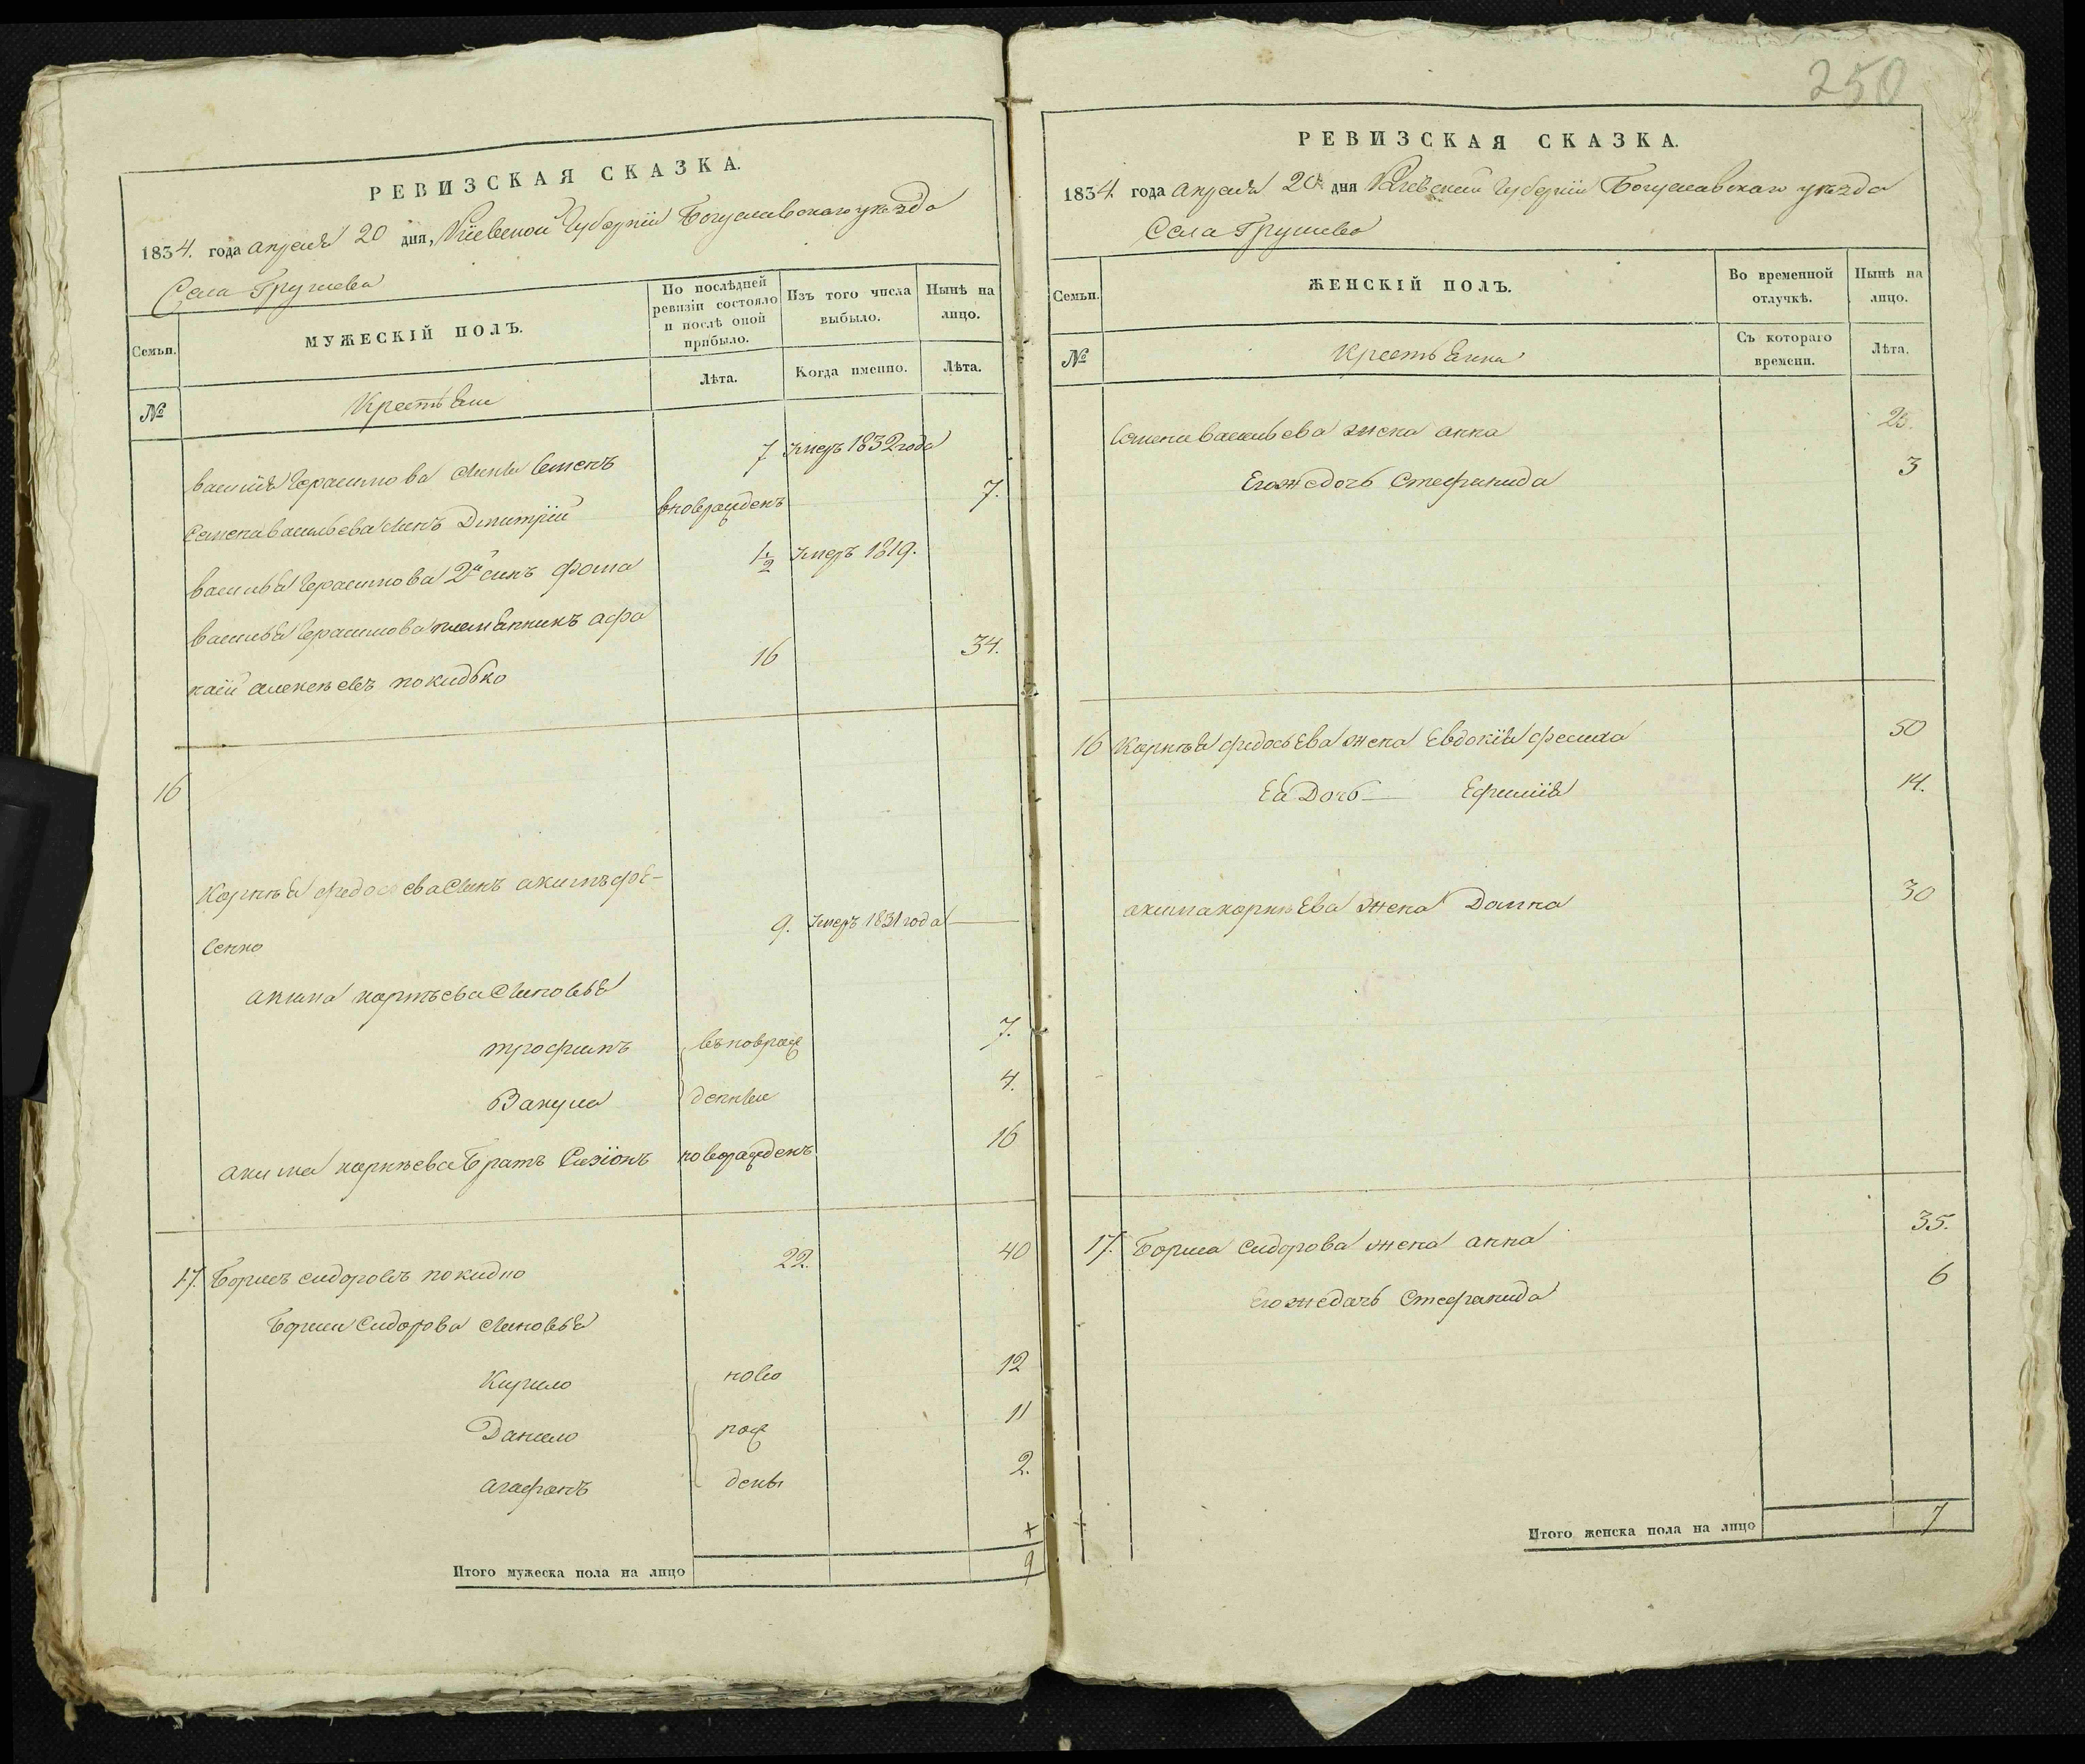 250
РЕВИЗСКАЯ СКАЗКА.
1834. года апреля 20 дня, Кіевской Губерніи Богуславскаго уезда
Села Грушева
Семьи.
МУЖЕСКІЙ ПОЛЪ.
По послѣдней ревизіи состояло и послѣ оной прибыло.
Изъ того числа выбыло.
Нынѣ на лицо.
№
Крестьяне
Лѣта.
Когда именно.
Лѣта.
василія Герасимова сынъ семенъ 7 умеръ 1832 года
семена васильева сынъ Дмитрій вноврожденъ 7.
василья Герасимова 2й сынъ фома 1/2 умеръ 1819.
василья Герасимова племянникъ афа
насій алексѣевъ покидько 16 34.
16
Корнѣя федосева сынъ акимъ фе-
сенко 9. умеръ 1831 года
акима корнѣева сыновья
трофимъ въноврож 7.
Вакула денныи 4.
акима корнѣева братъ Сизіонъ новорожденъ 16
17. Борисъ сидоровъ покидко 22. 40
Бориса Сидорова сыновья
Кирило ново 12
Данило рож 11
агафонъ дены 2.
+
Итого мужеска пола на лицо 9
РЕВИЗСКАЯ СКАЗКА.
1834. года апреля 20 дня Кіевской Губерніи Богуславскаго уезда
Села Грушева
Семьи.
ЖЕНСКІЙ ПОЛЪ.
Во временной отлучкѣ.
Нынѣ на лицо.
№
Крестьянки
Съ котораго времени.
Лѣта.
Семена васильева жена анна 25.
Егожедочь Стефанида 3
16 Корнѣя федосьева жена Евдокія фесиха 50
Ея Дочь — Ефимія 14.
акима корнѣева жена Домна 30
17. Бориса сидорова жена анна 35.
егожедочь Стефанида 6
+
Итого женска пола на лицо 7